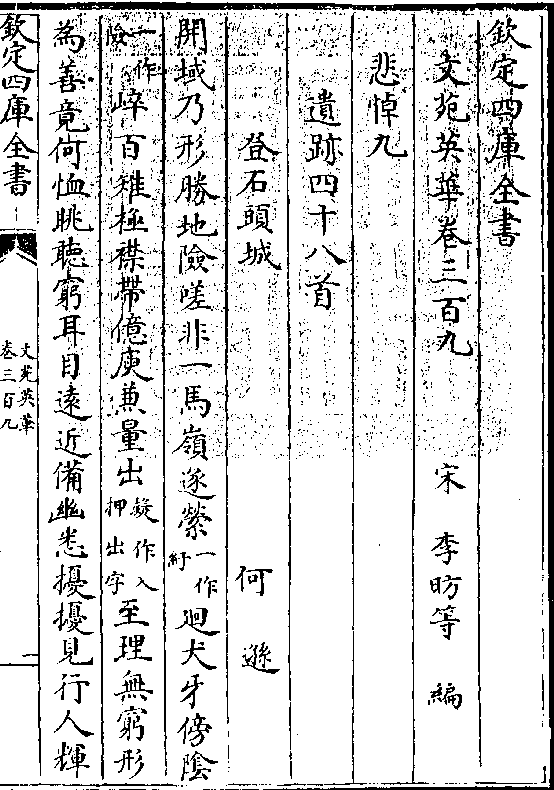 欽定四庫全書
文苑英華卷三百九 宋 李昉等 編
悲悼九
遺跡四十八首
登石頭城 何遜
開域乃形勝地險嗟非一馬嶺逐縈一作紆廻犬牙傍陰
一作險崪百雉極襟帶億庾兼量出擬作入押出字至理無窮形
為善竟何恤眺聽窮耳目遠近備幽悉擾擾見行人輝
欽定四庫全書
文苑英華
卷三百九
一